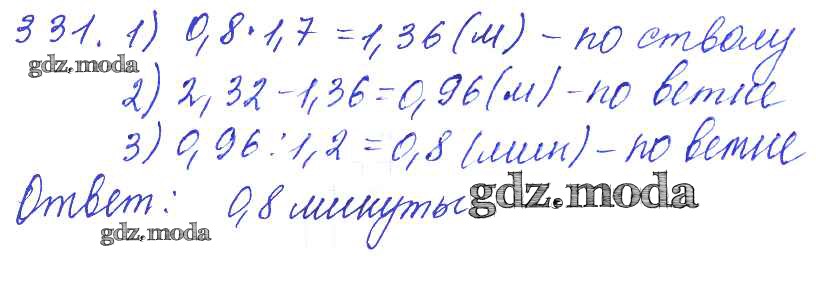 331. 1) 0,8·1,7=1,36(м) – по стволу
gdz.moda
2) 2,32–1,36=0,96(м) – по ветке
3) 0,96:1,2=0,8(мин) – по ветке
Ответ: 0,8 минуты gdz.moda
gdz.moda